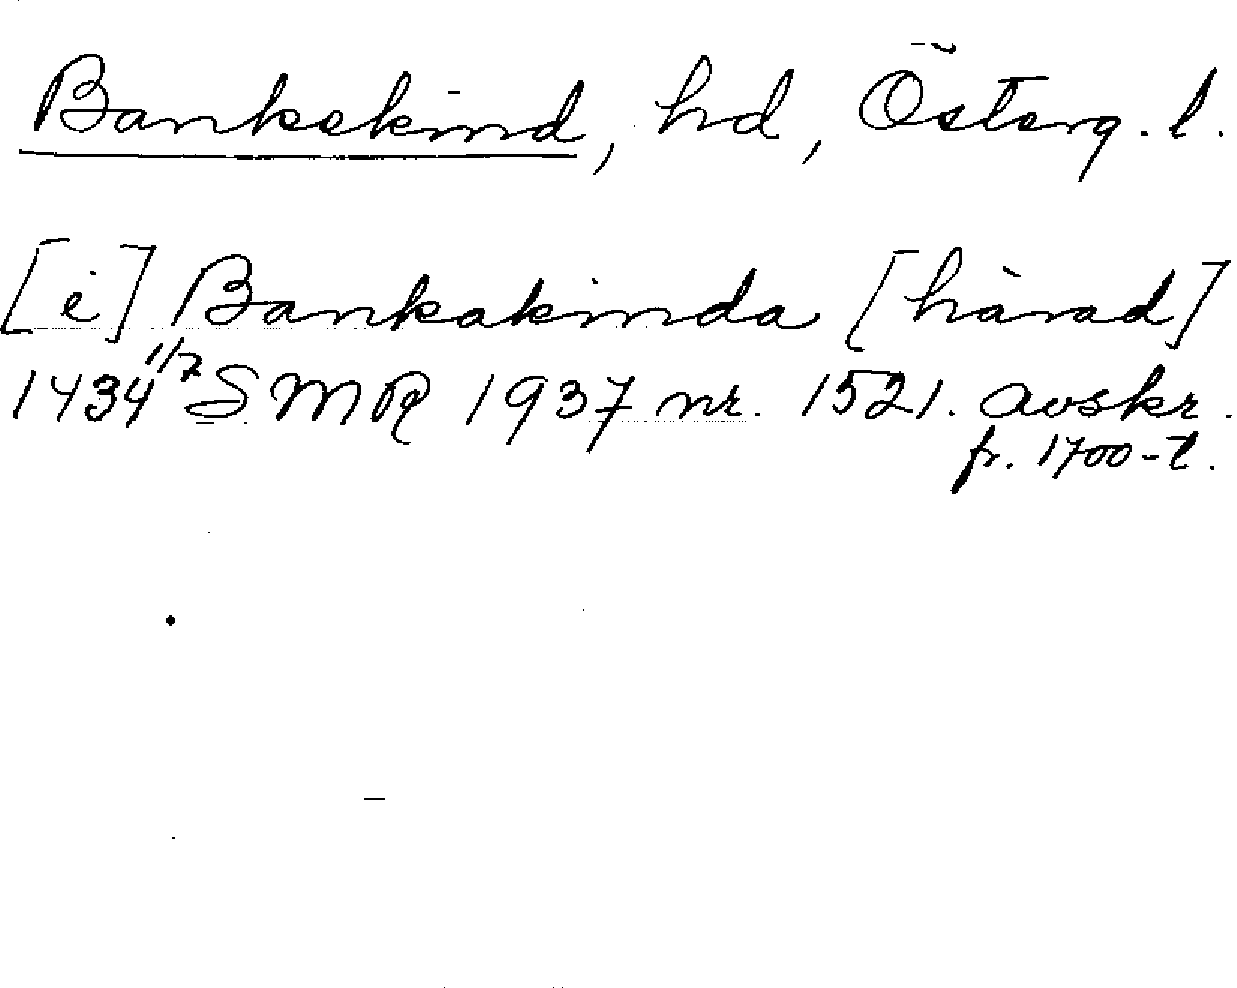 Bankekind, hd, Österg. l.
[i] Bankakinda [härad]
1434 1/7 SMR 1937 nr. 1521. avskr.
fr. 1700-t.